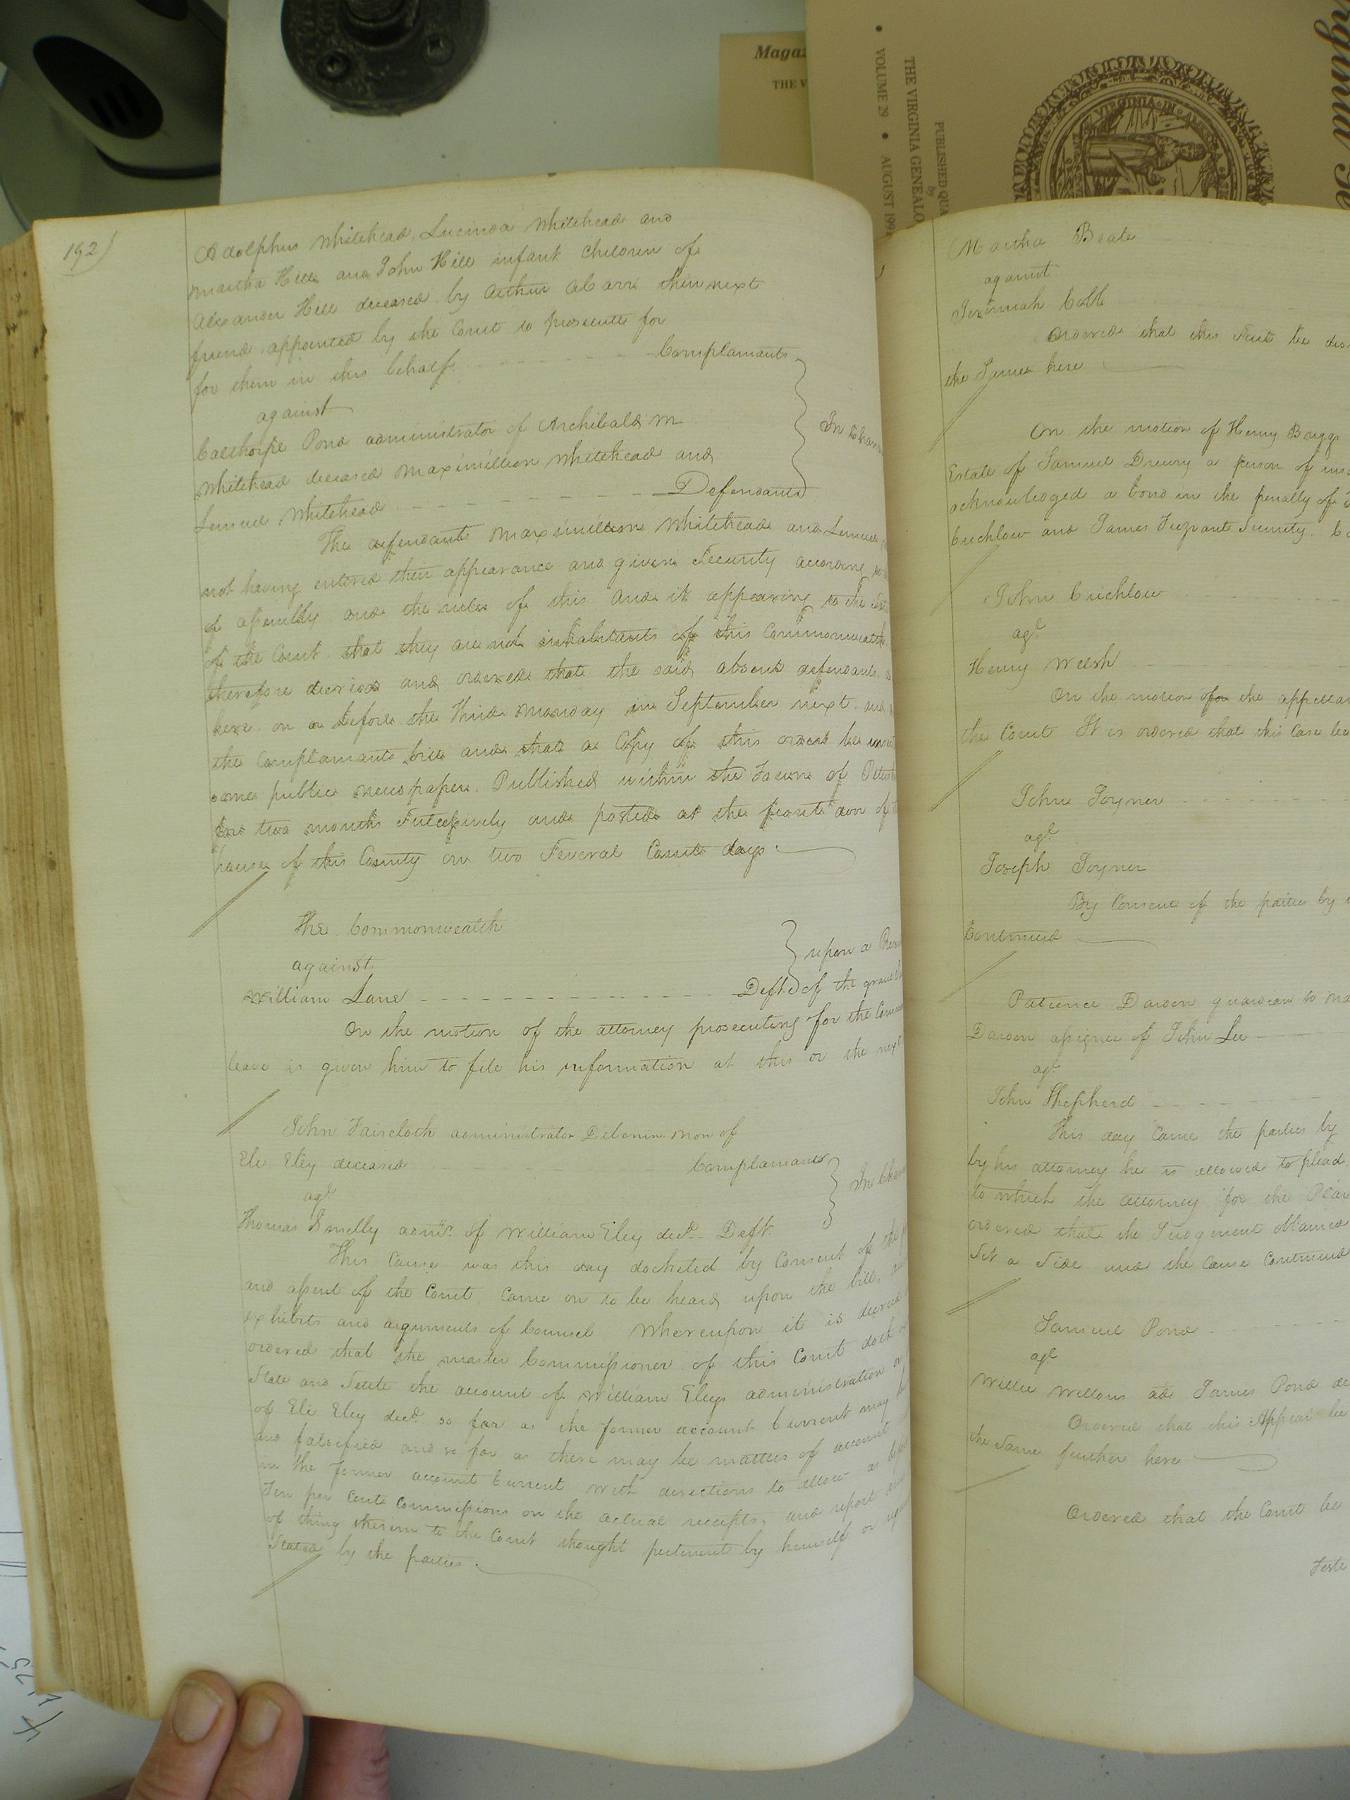 Magaz
THE V
THE VIRGINIA GENEALO
VOLUME 29 • AUGUST 199
PUBLISHED QUA
by
VIRGINIA
192)
Adolphus Whitehead, Lucinda Whitehead and
Martha Hill and John Hill infant Children of
Alexander Hill deceased by Arthur A Carr their next
friend appointed by the Court to prosecute for
for them in this behalf Complainants
against
Calthorpe Pond administrator of Archibald M
Whitehead deceased Maximillion Whitehead and
Lemuel Whitehead Defendants
In Chan
The defendants Maximillion Whitehead and Lemuel
not having entered their appearance and given Security according to
of assembly and the rules of this And it appearing to the
of the Court that they are not inhabitants of this Commonwealth
therefore decreed and ordered that the said absent defendants
here on or before the third Monday in September next and
the Complainants bill and that a Copy of this order be
some public newspaper Published within the Town of Peters
for two months Successively and posted at the front door of
house of this County on two Several Court days.
The Commonwealth
against
William Lane Deft
upon a
of the grand
On the motion of the attorney prosecuting for the Common
leave is given him to file his information at this or the next
John Faircloth administrator Debonis non of
Eli Eley deceased Complainant
agt
In Chan
Thomas Smelly admr. of William Eley decd. Deft
This Cause was this day docketed by Consent of the
and assent of the Court Came on to be heard upon the bill,
exhibits and arguments of Counsel Whereupon it is decreed
ordered that the master Commissioner of this Court do
State and Settle the account of William Eleys administration
of Eli Eley decd. so far as the former account Current may
and falsified and so far as there may be matters of account
in the former account Current with directions to allow
Ten per Cent Commissions on the actual receipts, and report
of thing therein to the Court thought pertinent by himself or
Stated by the parties.
Martha Beale
against
Jeremiah Cobb
Ordered that this Suit be dis
the Same here
On the motion of Henry Briggs
Estate of Samuel Drewry a person of
acknowledged a bond in the penalty of
Crichlow and James Turner Security.
John Crichlow
agt
Henry Welsh
On the motion of the appellan
the Court It is ordered that this Case be
John Joyner
agt
Joseph Joyner
By Consent of the parties by
Continued
Patience Darden guardian to
Darden assignee of John Lee
agt
John Shepherd
This day Came the parties by
by his attorney he is allowed to plead
to which the attorney for the Plain
ordered that the Judgment
Set a Side and the Cause Continued
Samuel Pond
agt
Willie James Pond
Ordered that this Appeal be
the Same further here
Ordered that the Court be
Teste